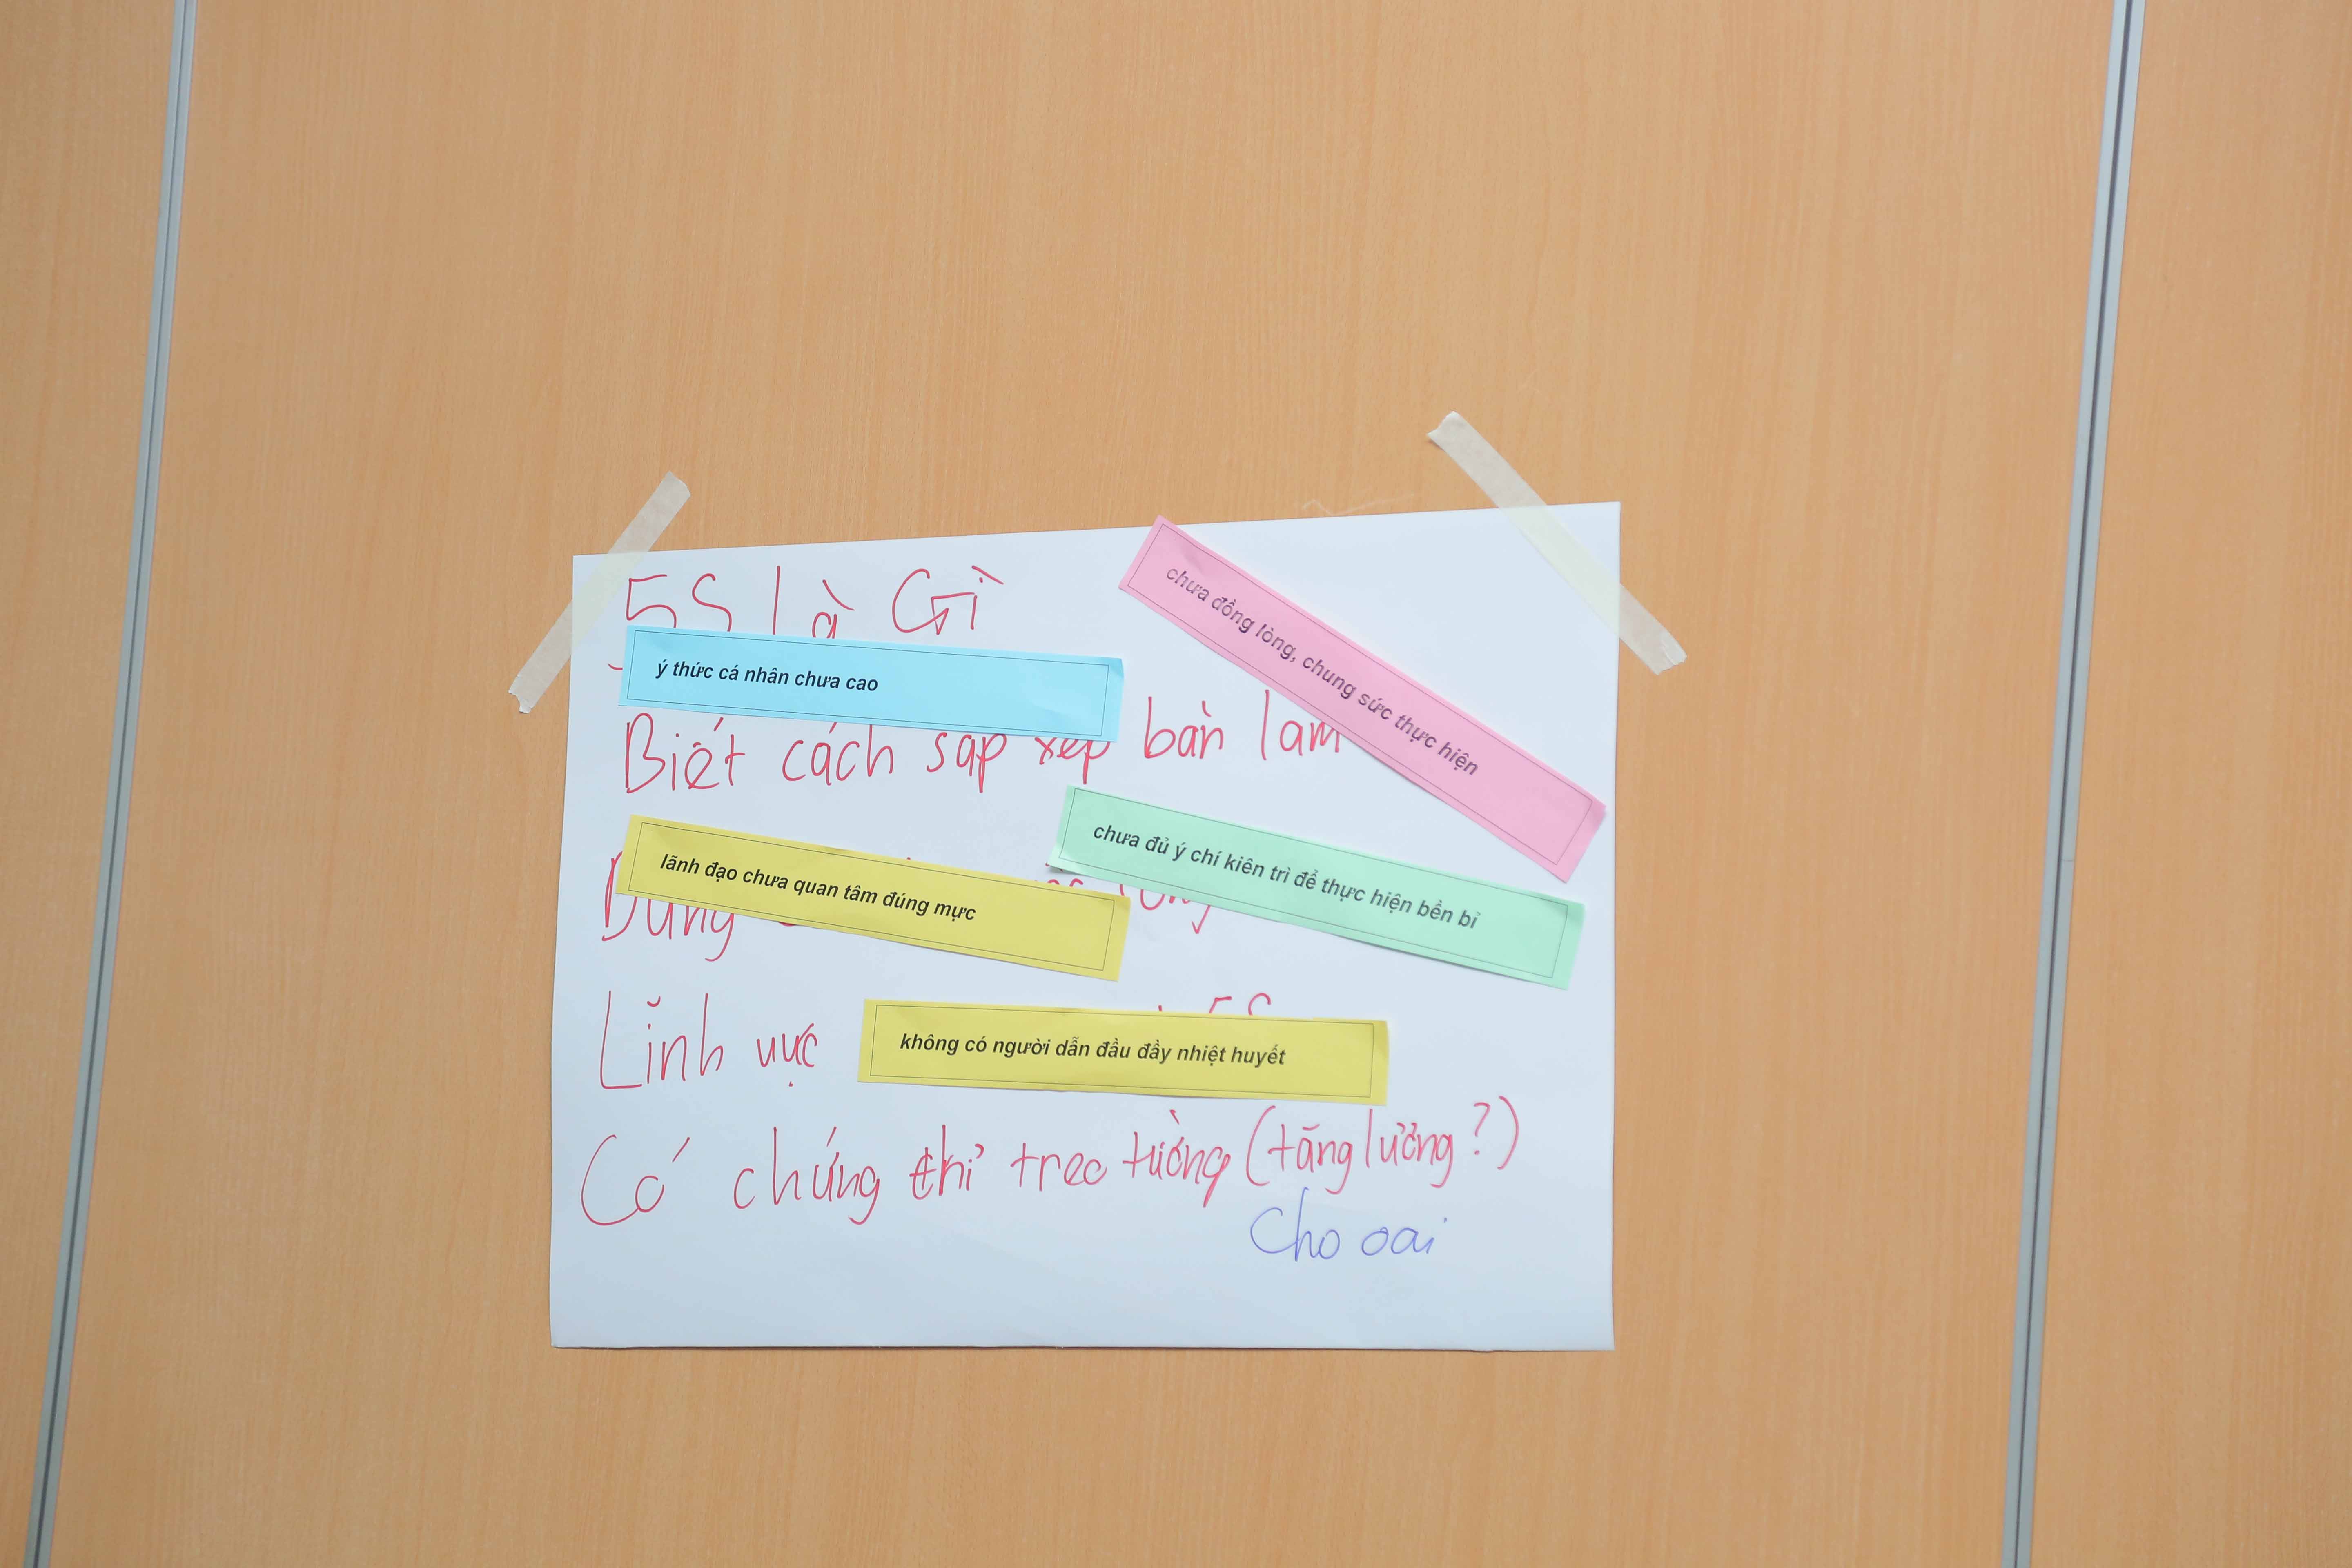 5S là Gì
chưa đồng lòng, chung sức thực hiện
ý thức cá nhân chưa cao
Biết cách sắp xếp bàn làm
chưa đủ ý chí kiên trì để thực hiện bền bỉ
lãnh đạo chưa quan tâm đúng mực
Lĩnh vực 5S
không có người dẫn đầu đầy nhiệt huyết
Có chứng chỉ treo tường (tăng lương?)
Cho oai